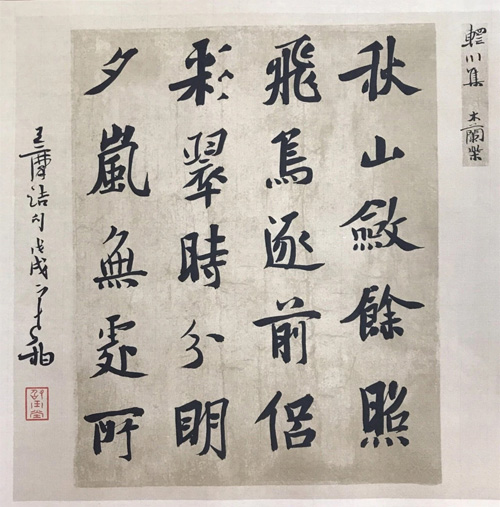 輞川集 木蘭柴
秋山斂餘照
飛鳥逐前侶
彩翠時分明
夕嵐無處所
王摩詰句戊戌